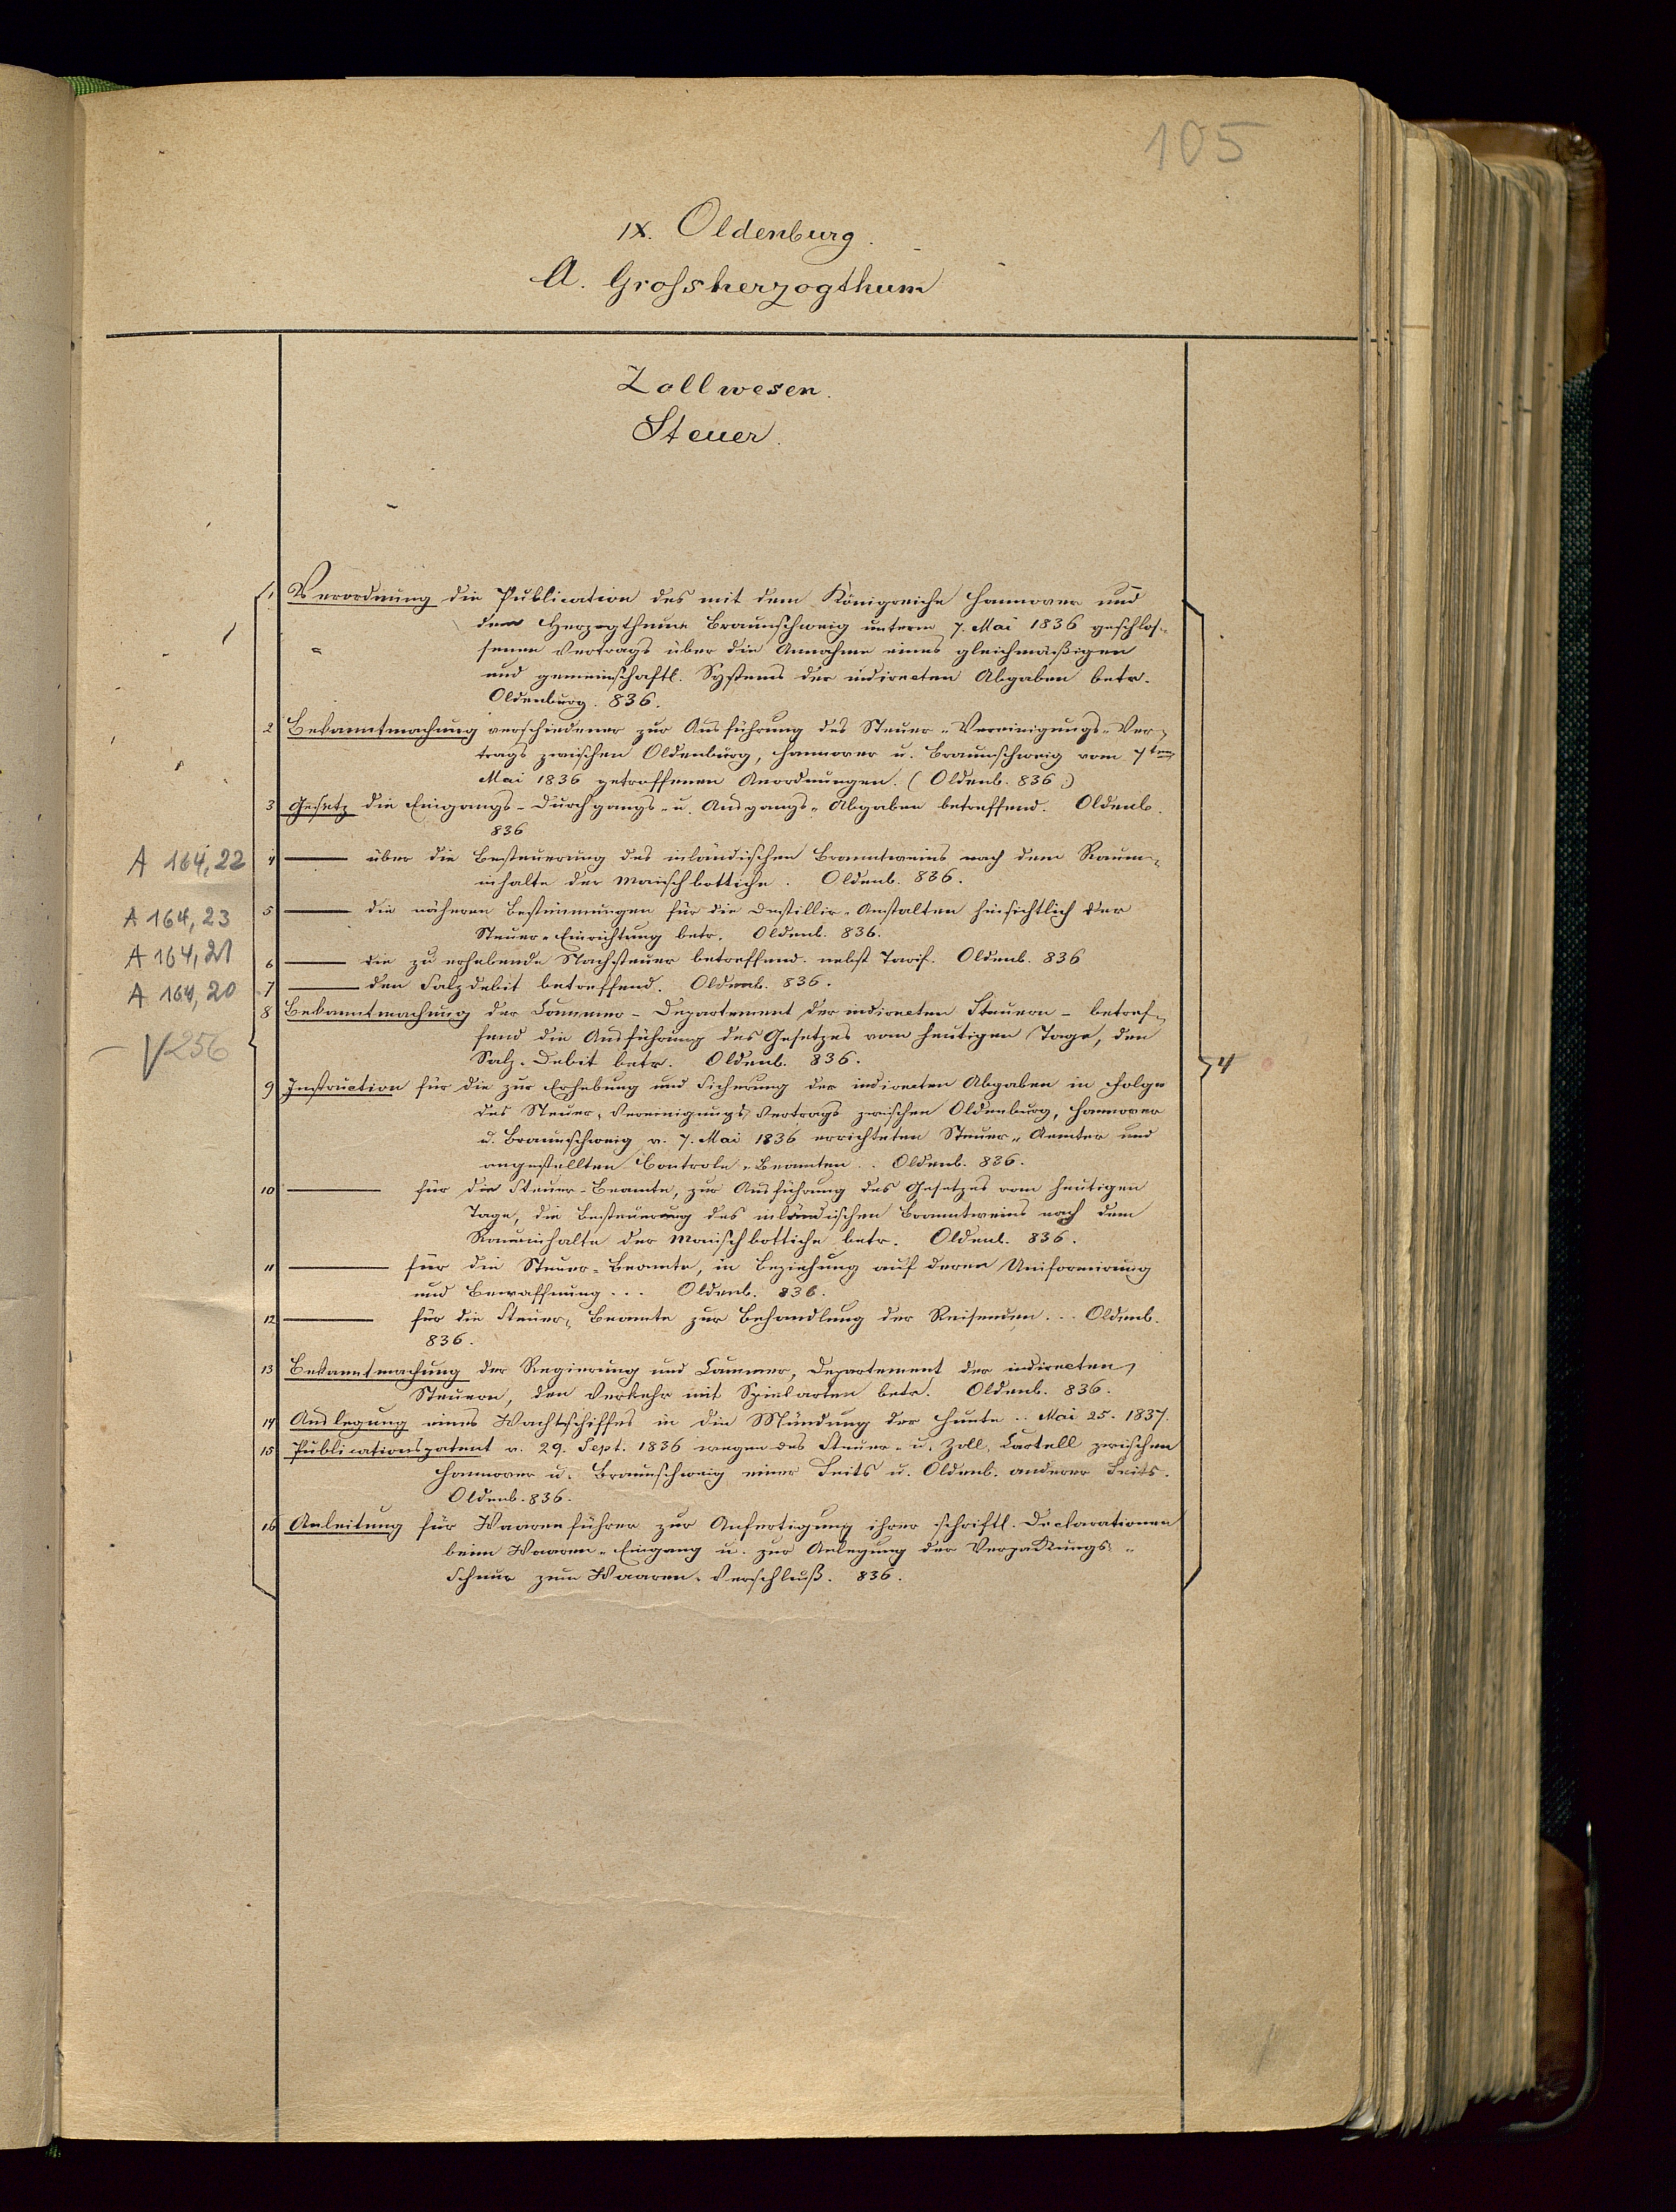 105
IX. Oldenburg.
A. Grossherzogthum
Zollwesen.
Steuer.
1 Verordnung die Publication des mit dem Königreiche Hannover und
dem Herzogthume Braunschweig unterm 7. Mai 1836 geschlos-
senen Vertrags über die Annahme eines gleichmäßigen
und gemeinschaftl. Systems der indirecten Abgaben betr.
Oldenburg. 836.
2 Bekanntmachung verschiedener zur Ausführung des Steuer-Vereinigungs-Ver-
trags zwischen Oldenburg, Hannover u. Braunschweig vom 7ten
Mai 1836 getroffenen Anordnungen. (Oldenb. 836.)
3 Gesetz die Eingangs- Durchgangs- u. Ausgangs-Abgaben betreffend. Oldenb.
836
A 164,22 4 — über die Besteuerung des inländischen Branntweins nach dem Raum-
inhalte der Maischbottiche. Oldenb. 836.
A 164,23 5 — die näheren Bestimmungen für die Destillir-Anstalten hinsichtlich der
Steuer-Einrichtung betr. Oldenb. 836.
A 164,21 6 — die zu erhebende Nachsteuer betreffend. nebst Tarif. Oldenb. 836
A 164,20 7 — den Salzdebit betreffend. Oldenb. 836.
8 Bekanntmachung der Cammer- Departement der indirecten Steuern - betref-
fend die Ausführung des Gesetzes vom heutigen Tage, den
– V256
Salz-Debit betr. Oldenb. 836.
4
9 Instruction für die zur Erhebung und Sicherung der indirecten Abgaben in Folge
des Steuer-Vereinigungs Vertrags zwischen Oldenburg, Hannover
u. Braunschweig v. 7. Mai 1836 errichteten Steuer-Aemter und
angestellten Controle-Beamten. . Oldenb. 836.
10 — für die Steuer-Beamte, zur Ausführung des Gesetzes vom heutigen
Tage, die Besteuerung des inländischen Branntweins nach dem
Rauminhalte der Maischbottiche betr. Oldenb. 836.
11 — für die Steuer-Beamte, in Beziehung auf deren Uniformirung
und Bewaffnung... Oldenb. 836.
12 — für die Steuer-Beamte zur Behandlung der Reisenden... Oldenb.
836.
13 Bekanntmachung der Regierung und Cammer, Departement der indirecten
Steuern, den Verkehr mit Spielkarten betr. Oldenb. 836.
14 Auslegung eines Wachtschiffes in die Mündung der Hunte.. Mai 25. 1837.
15 Publicationspatent v. 29. Sept. 1836 wegen des Steuer- u. Zoll-Cartell zwischen
Hannover u. Braunschweig einer Seits u. Oldenb. anderer Seits.
Oldenb. 836.
16 Anleitung für Waarenführer zur Anfertigung ihrer schriftl. Declarationen
beim Waaren-Eingang u. zur Anlegung der Verpackungs-
Schnur zum Waaren-Verschluß. 836.